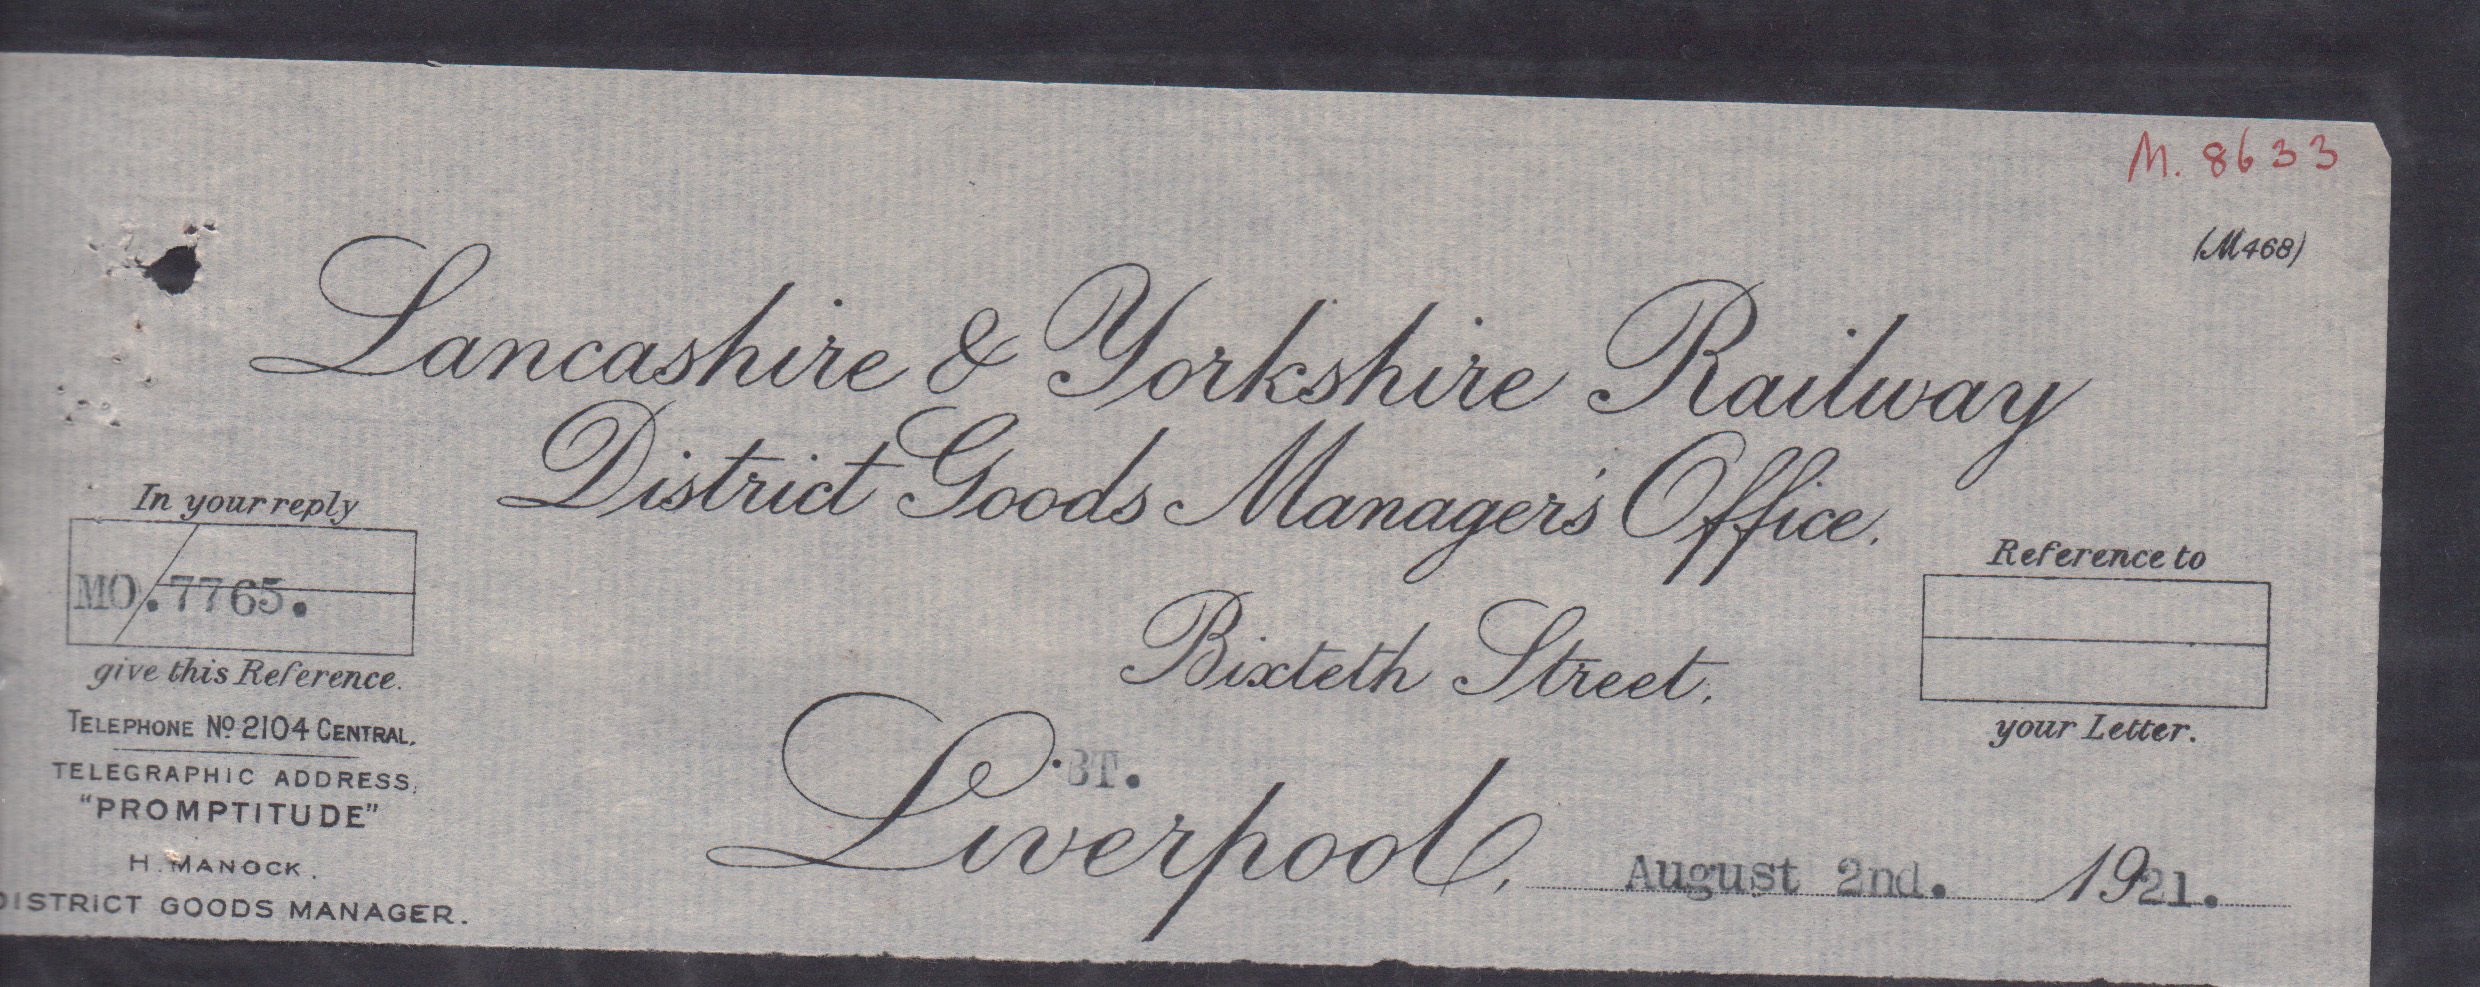 M. 8633
(M468)
Lancashire & Yorkshire Railway
District Goods Manager's Office.
In your reply
MO.7765.
give this Reference.
Reference to
your Letter.
Bixteth Street,
TELEPHONE No. 2104 CENTRAL.
TELEGRAPHIC ADDRESS,
"PROMPTITUDE"
H. MANOCK.
DISTRICT GOODS MANAGER.
BT.
Liverpool, August 2nd. 1921.